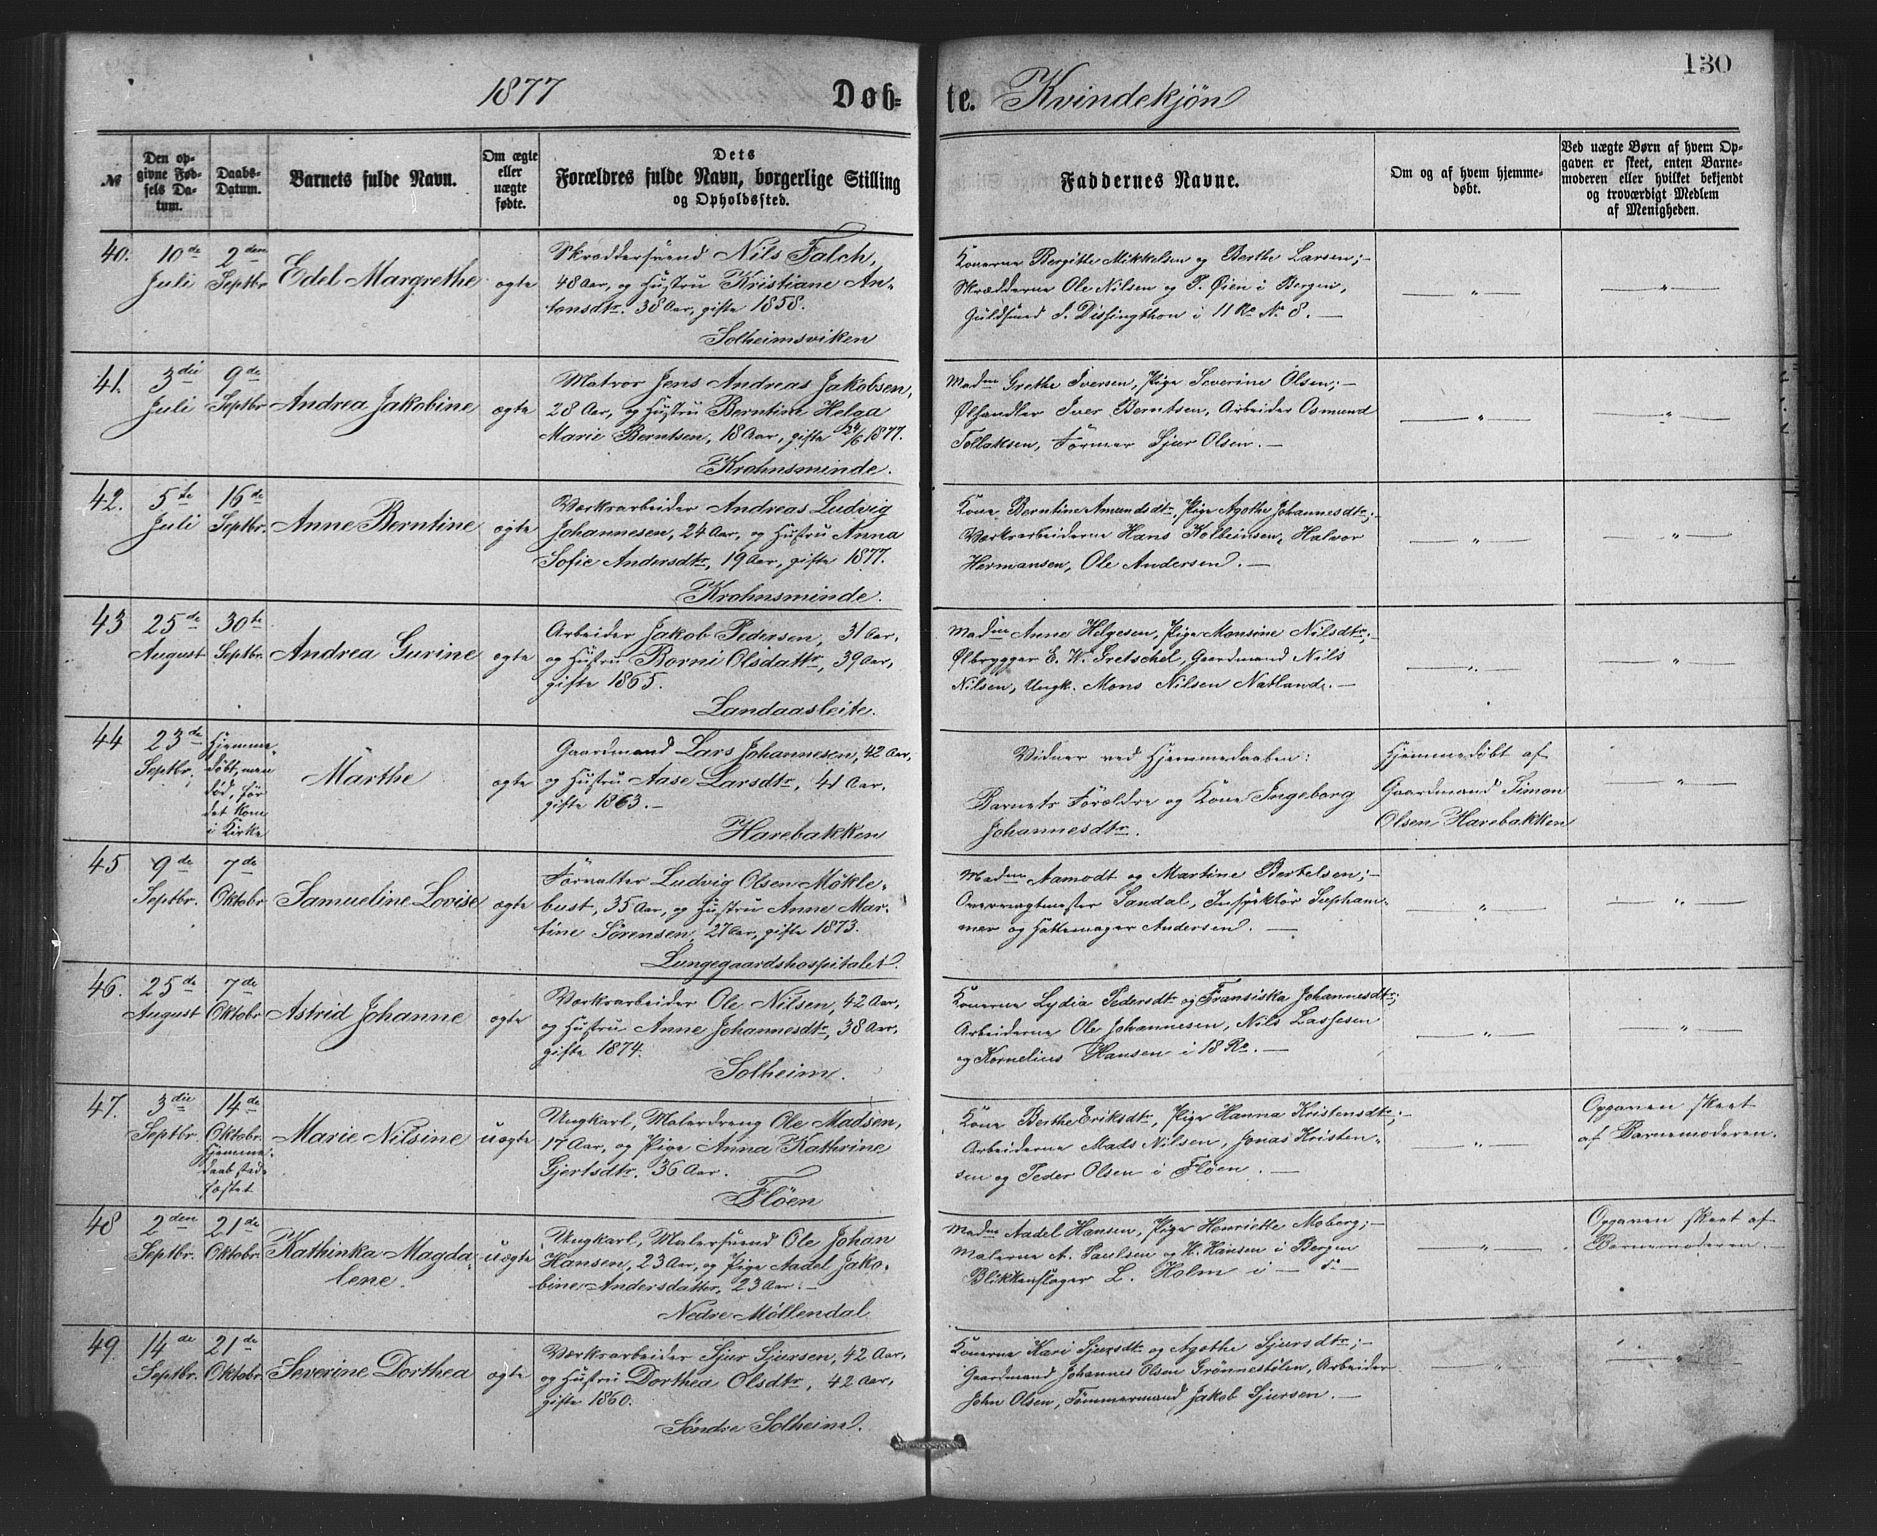 130
1877 Døb- te. Kvindekjøn
№
Den opgivne Fødsels Datum.
Daabs-Datum.
Barnets fulde Navn.
Om ægte eller uægte født.
Dets Forældres fulde Navn, borgerlige Stilling og Opholdssted.
Faddernes Navne.
Om og af hvem hjemmedøbt.
Ved uægte Børn af hvem Opgaven er skeet, enten Barnemoderen eller hvilket bekjendt og troværdigt Medlem af Menigheden.
40. 10de Juli 2den Septbr Edel Margrethe ægte
Skræddersvend Nils Falch,
48 Aar, og Hustru Kristiane An-
tonsdtr. 38 Aar, gifte 1858.
Solheimsviken
Konerne Bergitte Mikkelsen og Berthe Larsen;-
Skrædderne Ole Nilsen og P. Øien i Bergen,
Guldsmed J. Dissingthon i 11 Ro № 8. —
— „ —
— „ —
41. 3die Juli 9de Septbr Andrea Jakobine ægte
Matros Jens Andreas Jakobsen,
28 Aar, og Hustru Berntine Helga
Marie Berntsen, 18 Aar, gifte 24/6 1877.
Krohnsminde.
Madme Grethe Iversen, Pige Severine Olsen;-
Ølhandler Iver Berntsen, Arbeider Osmund
Tollaksen, Former Sjur Olsen. —
— „ —
— „ —
42. 5te Juli 16de Septbr. Anne Berntine ægte
Værksarbeider Andreas Ludvig
Johannesen, 24 Aar, og Hustru Anna
Sofie Andersdtr, 19 Aar, gifte 1877.
Krohnsminde.
Kone Berntine Amundsdtr, Pige Agathe Johannesdtr;-
Værksarbeiderne Hans Kolbeinsen, Halvor
Hermansen, Ole Andersen. —
— „ —
— „ —
43 25de August 30te Septbr. Andrea Gurine ægte
Arbeider Jakob Pedersen, 31 Aar,
og Hustru Borni Olsdattr, 39 Aar,
gifte 1865.
Landaasleite.
Madme Anne Helgesen, Pige Monsine Nilsdtr;-
Ølbrygger E. W. Gretschel, Gaardmand Nils
Nilsen, Ungk. Mons Nilsen Natland. —
— „ —
— „ —
44 23de Septbr. Hjemme-
døbt, men
død, før
det kom
i Kirke
Marthe ægte
Gaardmand Lars Johannesen, 42 Aar,
og Hustru Aase Larsdtr, 41 Aar,
gifte 1863. —
Harebakken
Vidner ved Hjemmedaaben:
Barnets Forældre og Kone Ingeborg
Johannesdtr.
Hjemmedøbt af
Gaardmand Simon
Olsen Harebakken
— „ —
45 9de Septbr. 7de Oktobr Samueline Lovise ægte
Forvalter Ludvig Olsen Møkle-
bust, 35 Aar, og Hustru Anne Mar-
tine Sørensen, 27 Aar, gifte 1873.
Lungegaardshospitalet.
Madme Aamodt og Martine Bertelsen;-
Overvagtmester Sandal, Inspektør Suphammer
og Hattemager Andersen. —
— „ —
— „ —
46. 25de August 7de Oktobr Astrid Johanne ægte
Værksarbeider Ole Nilsen, 42 Aar,
og Hustru Anne Johannesdtr, 38 Aar,
gifte 1874.
Solheim.
Konerne Lydia Pedersdtr og Fransiska Johannesdtr;
Arbeiderne Ole Johannesen, Nils Lassesen
og Kornelius Hansen i 18 Ro. —
— „ —
— „ —
47. 3die Septbr. 14de Oktobr.
Hjemme-
daab stad-
fæstet
Marie Nilsine uægte
Ungkarl, Malerdreng Ole Madsen,
17 Aar, og Pige Anna Kathrine
Gjertsdtr. 36 Aar.
Fløen
Kone Berthe Eriksdtr, Pige Hanna Kristensdtr;-
Arbeiderne Mads Nilsen, Jonas Kristen-
sen og Peder Olsen i Fløen. —
— „ —
Opgaven skeet
af Barnemoderen.
48 2den Septbr. 21de Oktobr. Kathinka Magda-
lene. uægte
Ungkarl, Malersvend Ole Johan
Hansen, 23 Aar, og Pige Aadel Jako-
bine Andersdatter, 23 Aar. —
Nedre Møllendal
Madme Aadel Hansen, Pige Henriette Moberg;-
Malerne A. Paulsen og H. Hansen i Bergen
Blikkenslager L. Holm i — d° —
— „ —
Opgaven skeet af
Barnemoderen. —
49. 14de Septbr. 21de Oktobr. Severine Dorthea ægte
Værksarbeider Sjur Sjursen, 42 Aar,
og Hustru Dorthea Olsdtr, 42 Aar,
gifte 1860.
Søndre Solheim.
Konerne Kari Sjursdtr og Agathe Sjursdtr;-
Gaardmand Johannes Olsen Grønnestølen, Arbeider
John Olsen, Tømmermand Jakob Sjursen. —
— „ —
— „ —